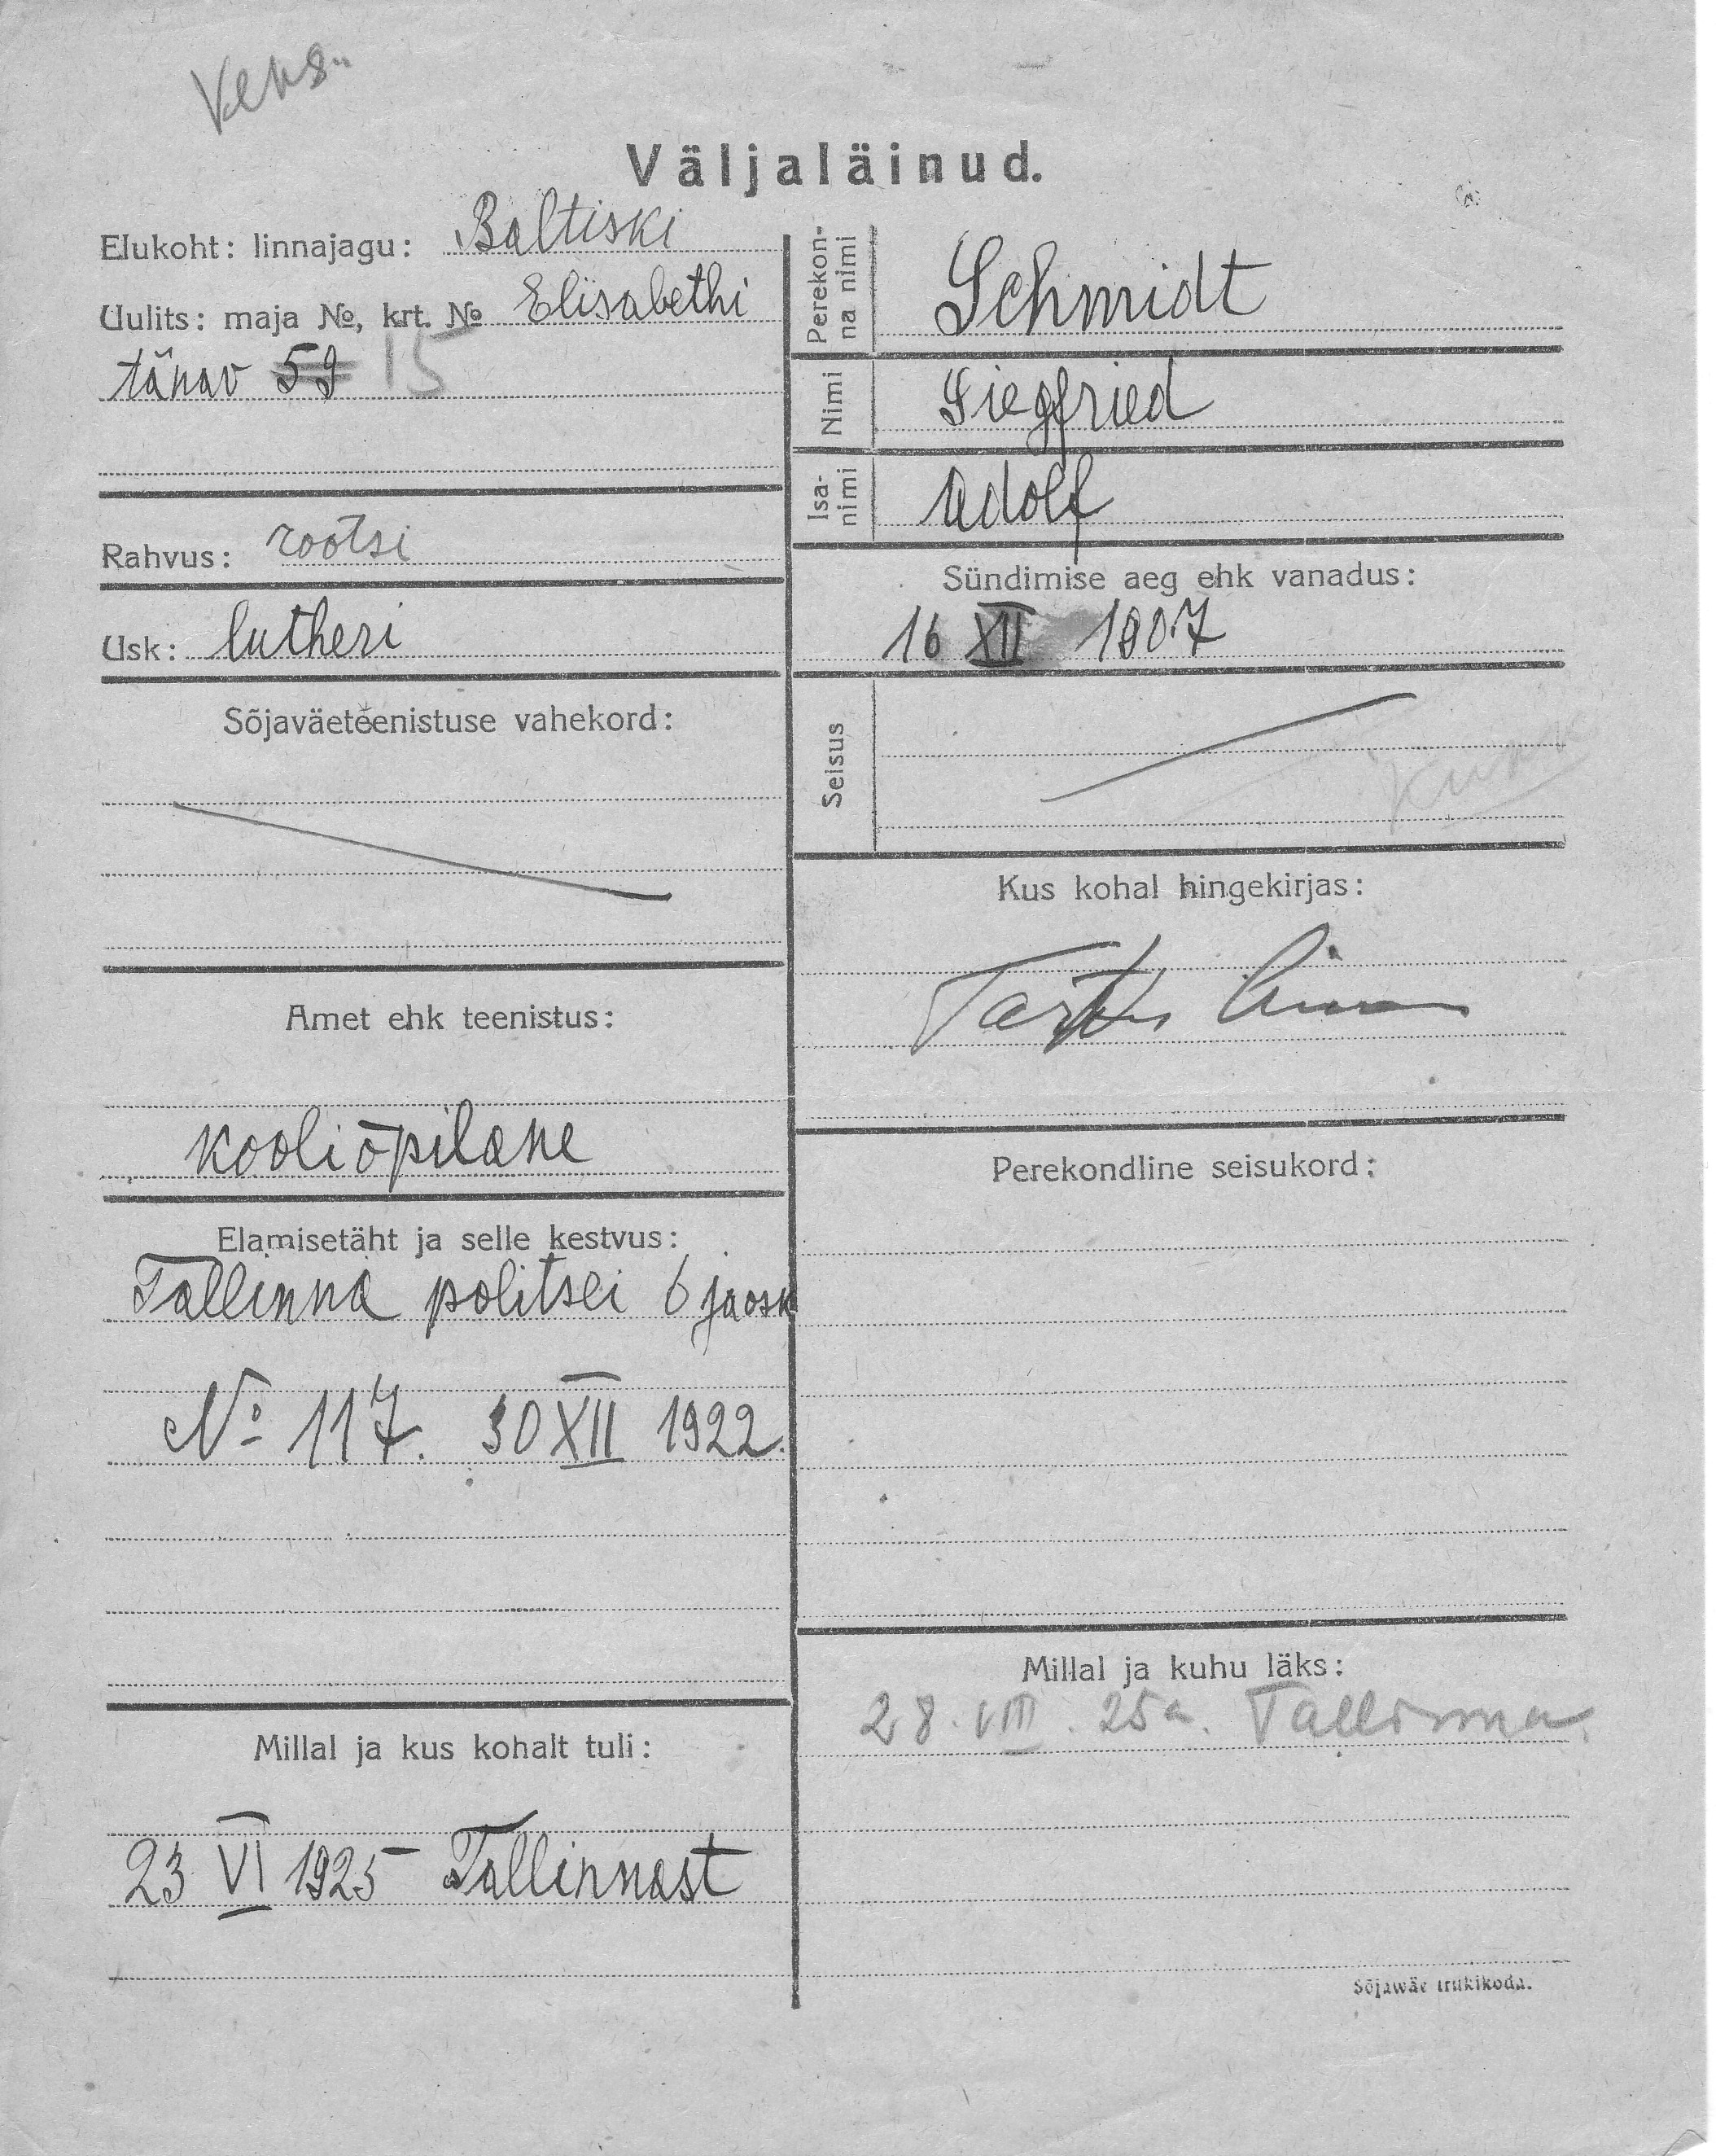 Väljaläinud.
Elukoht: linnajagu: Baltiski
Uulits: maja №, krt. № Elisabethi
tänav 59 15
Rahvus: rootsi
Usk: lutheri
Sõjaväeteenistuse vahekord:
Amet ehk teenistus:
kooliõpilane
Elamisetäht ja selle kestvus:
Tallinna politsei 6 jaosk
№ 117. 30 XII 1922.
Millal ja kus kohalt tuli:
23 VI 1925 Tallinnast
Perekon-
na nimi
Schmidt
Nimi
Siegfried
Isa-
nimi
Adolf
Sündimise aeg ehk vanadus:
16 XII 1907
Seisus
Kus kohal hingekirjas:
Tartu
Perekondline seisukord:
Millal ja kuhu läks:
28. VIII. 25a. Tallinna.
Sõjawäe trükikoda.